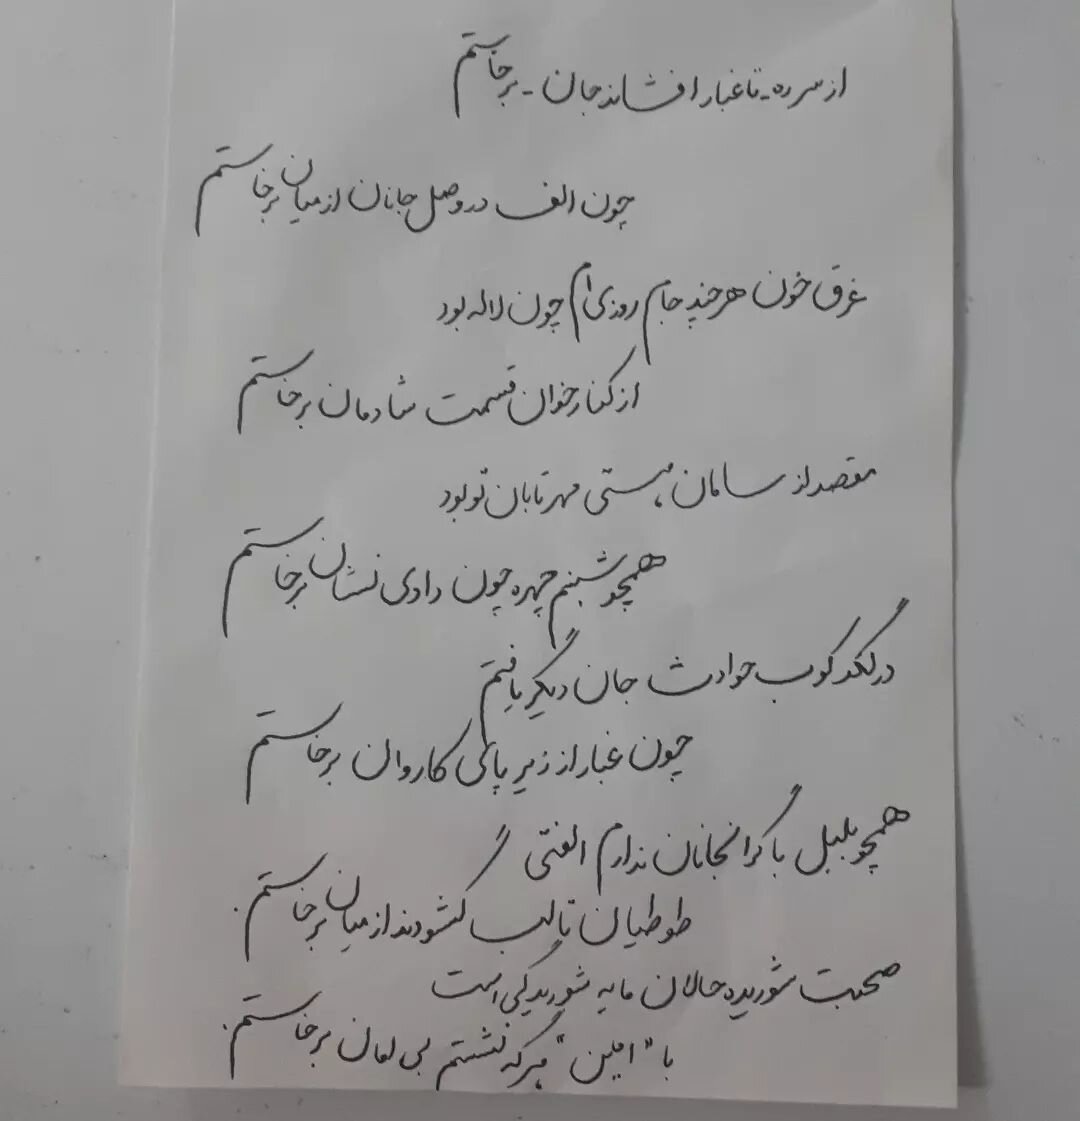 از سر ره - تا غبار افشاند جان - برخاستم
چون الف در وصل جانان از میان برخاستم
غرق خون هر چند جام روزی ام چون لاله بود
از کنار خوان قسمت شادمان برخاستم
مقصد از سامان هستی مهر تابان تو بود
همچو شبنم چهره چون دادی نشان برخاستم
در لگدکوب حوادث جان دیگر یافتم
چون غبار از زیر پای کاروان برخاستم
همچو بلبل با گرانجانان ندارم الفتی
طوطیان تا لب گشودند از میان برخاستم.
صحبت شوریده حالان مایه شوریدگی است
با "امین" هر گه نشستم بی امان برخاستم.